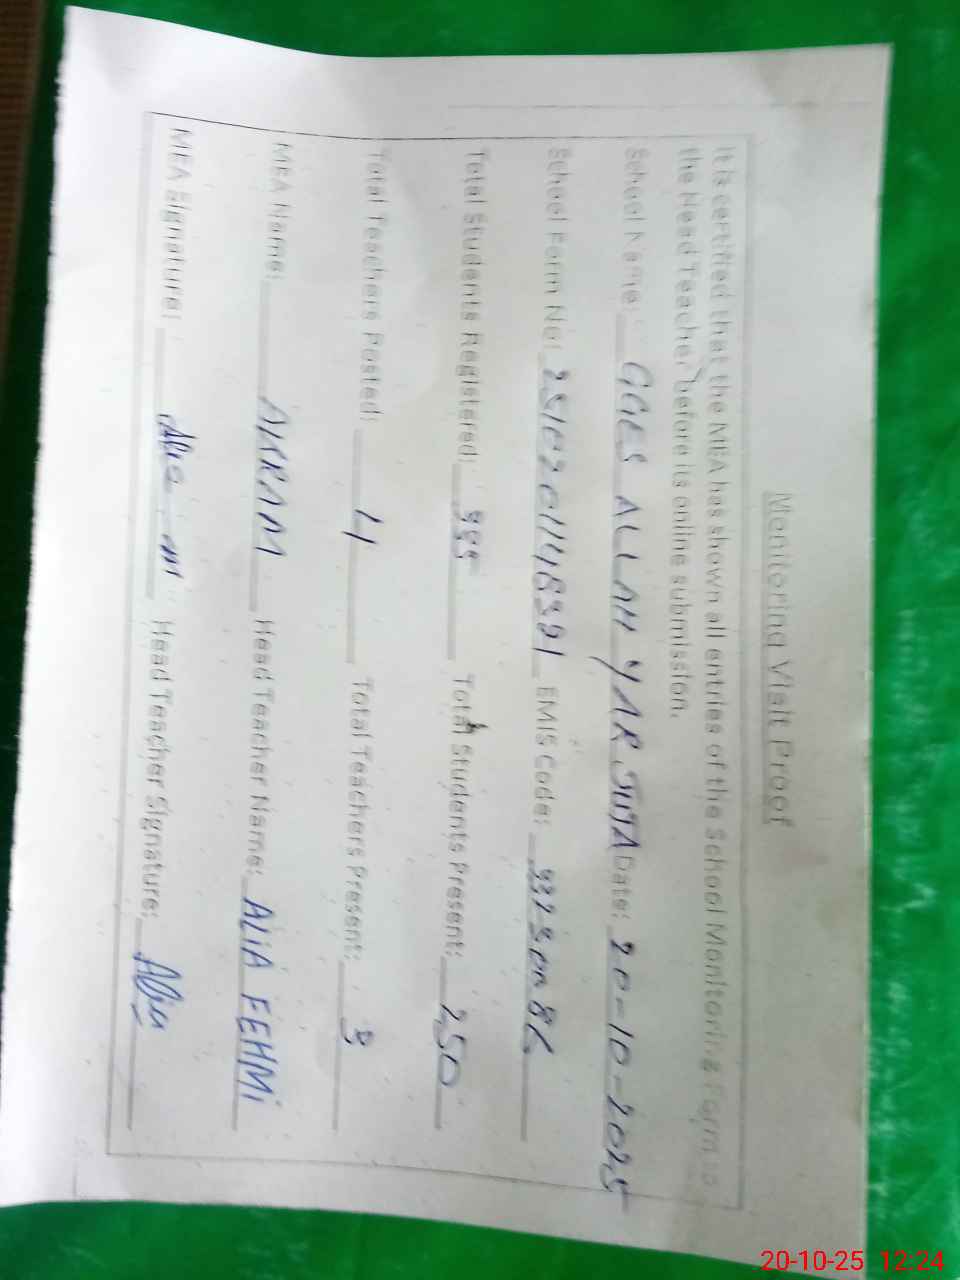 Monitoring Visit Proof
It is certified that the MEA has shown all entries of the School Monitoring Form to
the Head Teacher before its online submission.
School Name: GGES ALLAH YAR JUTA Date: 20-10-2025
School Form No: EMIS Code:
Total Students Registered: Total Students Present: 250
Total Teachers Posted: 4 Total Teachers Present: 3
MEA Name: AKRAM Head Teacher Name: ALIA FEHMI
MEA Signature: Head Teacher Signature:
20-10-25 12:24